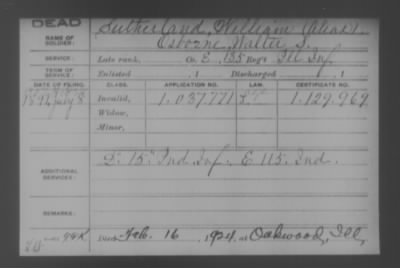 DEAD
NAME OF SOLDIER: Sutherland, William (alias).
Osborne, Walter S.
SERVICE: Late rank, Co. E, 135 Reg't Ill. Inf.
TERM OF SERVICE: Enlisted , 1 Discharged , 1
DATE OF FILING. CLASS. APPLICATION NO. LAW. CERTIFICATE NO.
1892, July 8. Invalid, 1.037.771 1.129.969
Widow,
Minor,
ADDITIONAL SERVICES: D. 15" Ind. Inf. E 115. Ind.
REMARKS:
Died Feb. 16, 1924, at Oakwood, Ill,